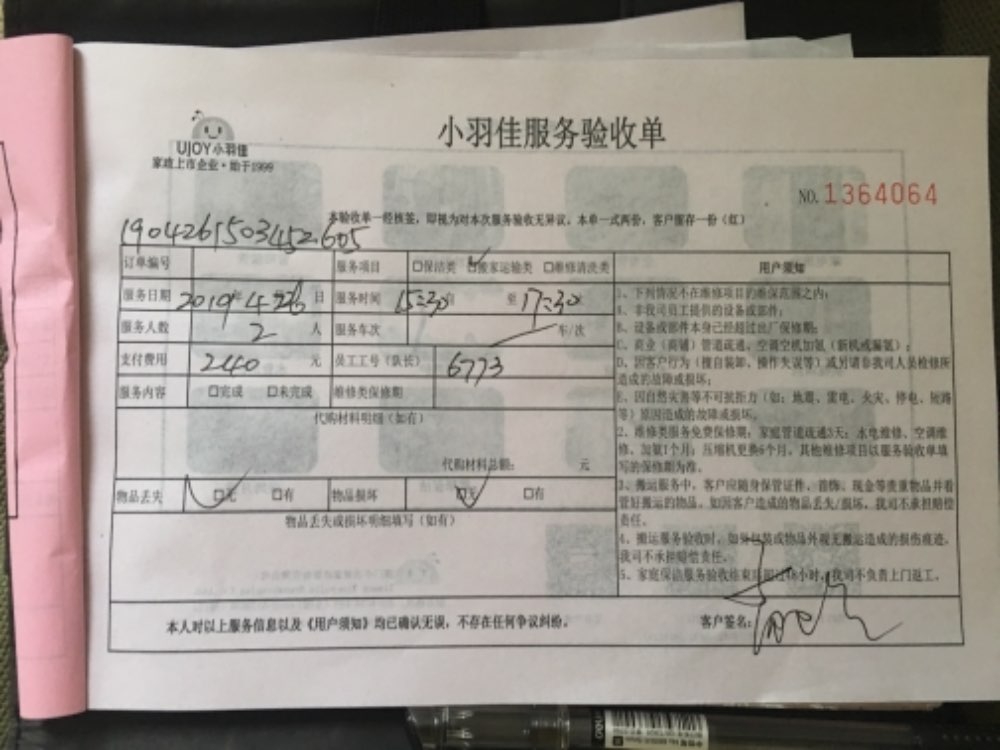 小羽佳服务验收单
UJOY小羽佳
家政上市企业·始于1999
NO. 1364064
本验收单一经核签，即视为对本次服务验收无异议。本单一式两份，客户留存一份（红）
1904261503452605
订单编号 服务项目 □保洁类 ☑搬家运输类 □维修清洗类
服务日期 2019年4月26日 服务时间 15:30 至 17:30
服务人数 2 人 服务车次 车/次
支付费用 2440 元 员工工号（队长） 6773
服务内容 □完成 □未完成 维修类保修期
代购材料明细（如有）
代购材料总额： 元
物品丢失 ☑无 □有 物品损坏 ☑无 □有
物品丢失或损坏明细填写（如有）
用户须知
1、下列情况不在维修项目的维保范围之内：
A、非我司员工提供的设备或部件；
B、设备或部件本身已经超过出厂保修期；
C、商业（商铺）管道疏通，空调空机加氟（新机或漏氟）；
D、因客户行为（擅自装卸、操作失误等）或另请非我司人员检修所
造成的故障或损坏；
E、因自然灾害等不可抗拒力（如：地震、雷电、火灾、停电、短路
等）原因造成的故障或损坏。
2、维修类服务免费保修期：家庭管道疏通3天；水电维修、空调维
修、加氟1个月；压缩机更换6个月，其他维修项目以服务验收单填
写的保修期为准。
3、搬运服务中，客户应随身保管证件、首饰、现金等贵重物品并看
管好搬运的物品，如因客户造成的物品丢失/损坏，我司不承担赔偿
责任。
4、搬运服务验收时，如包装或物品外观无搬运造成的损伤痕迹，
我司不承担赔偿责任。
5、家庭保洁服务验收结束后超过48小时，我司不负责上门返工。
本人对以上服务信息以及《用户须知》均已确认无误，不存在任何争议纠纷。
客户签名：